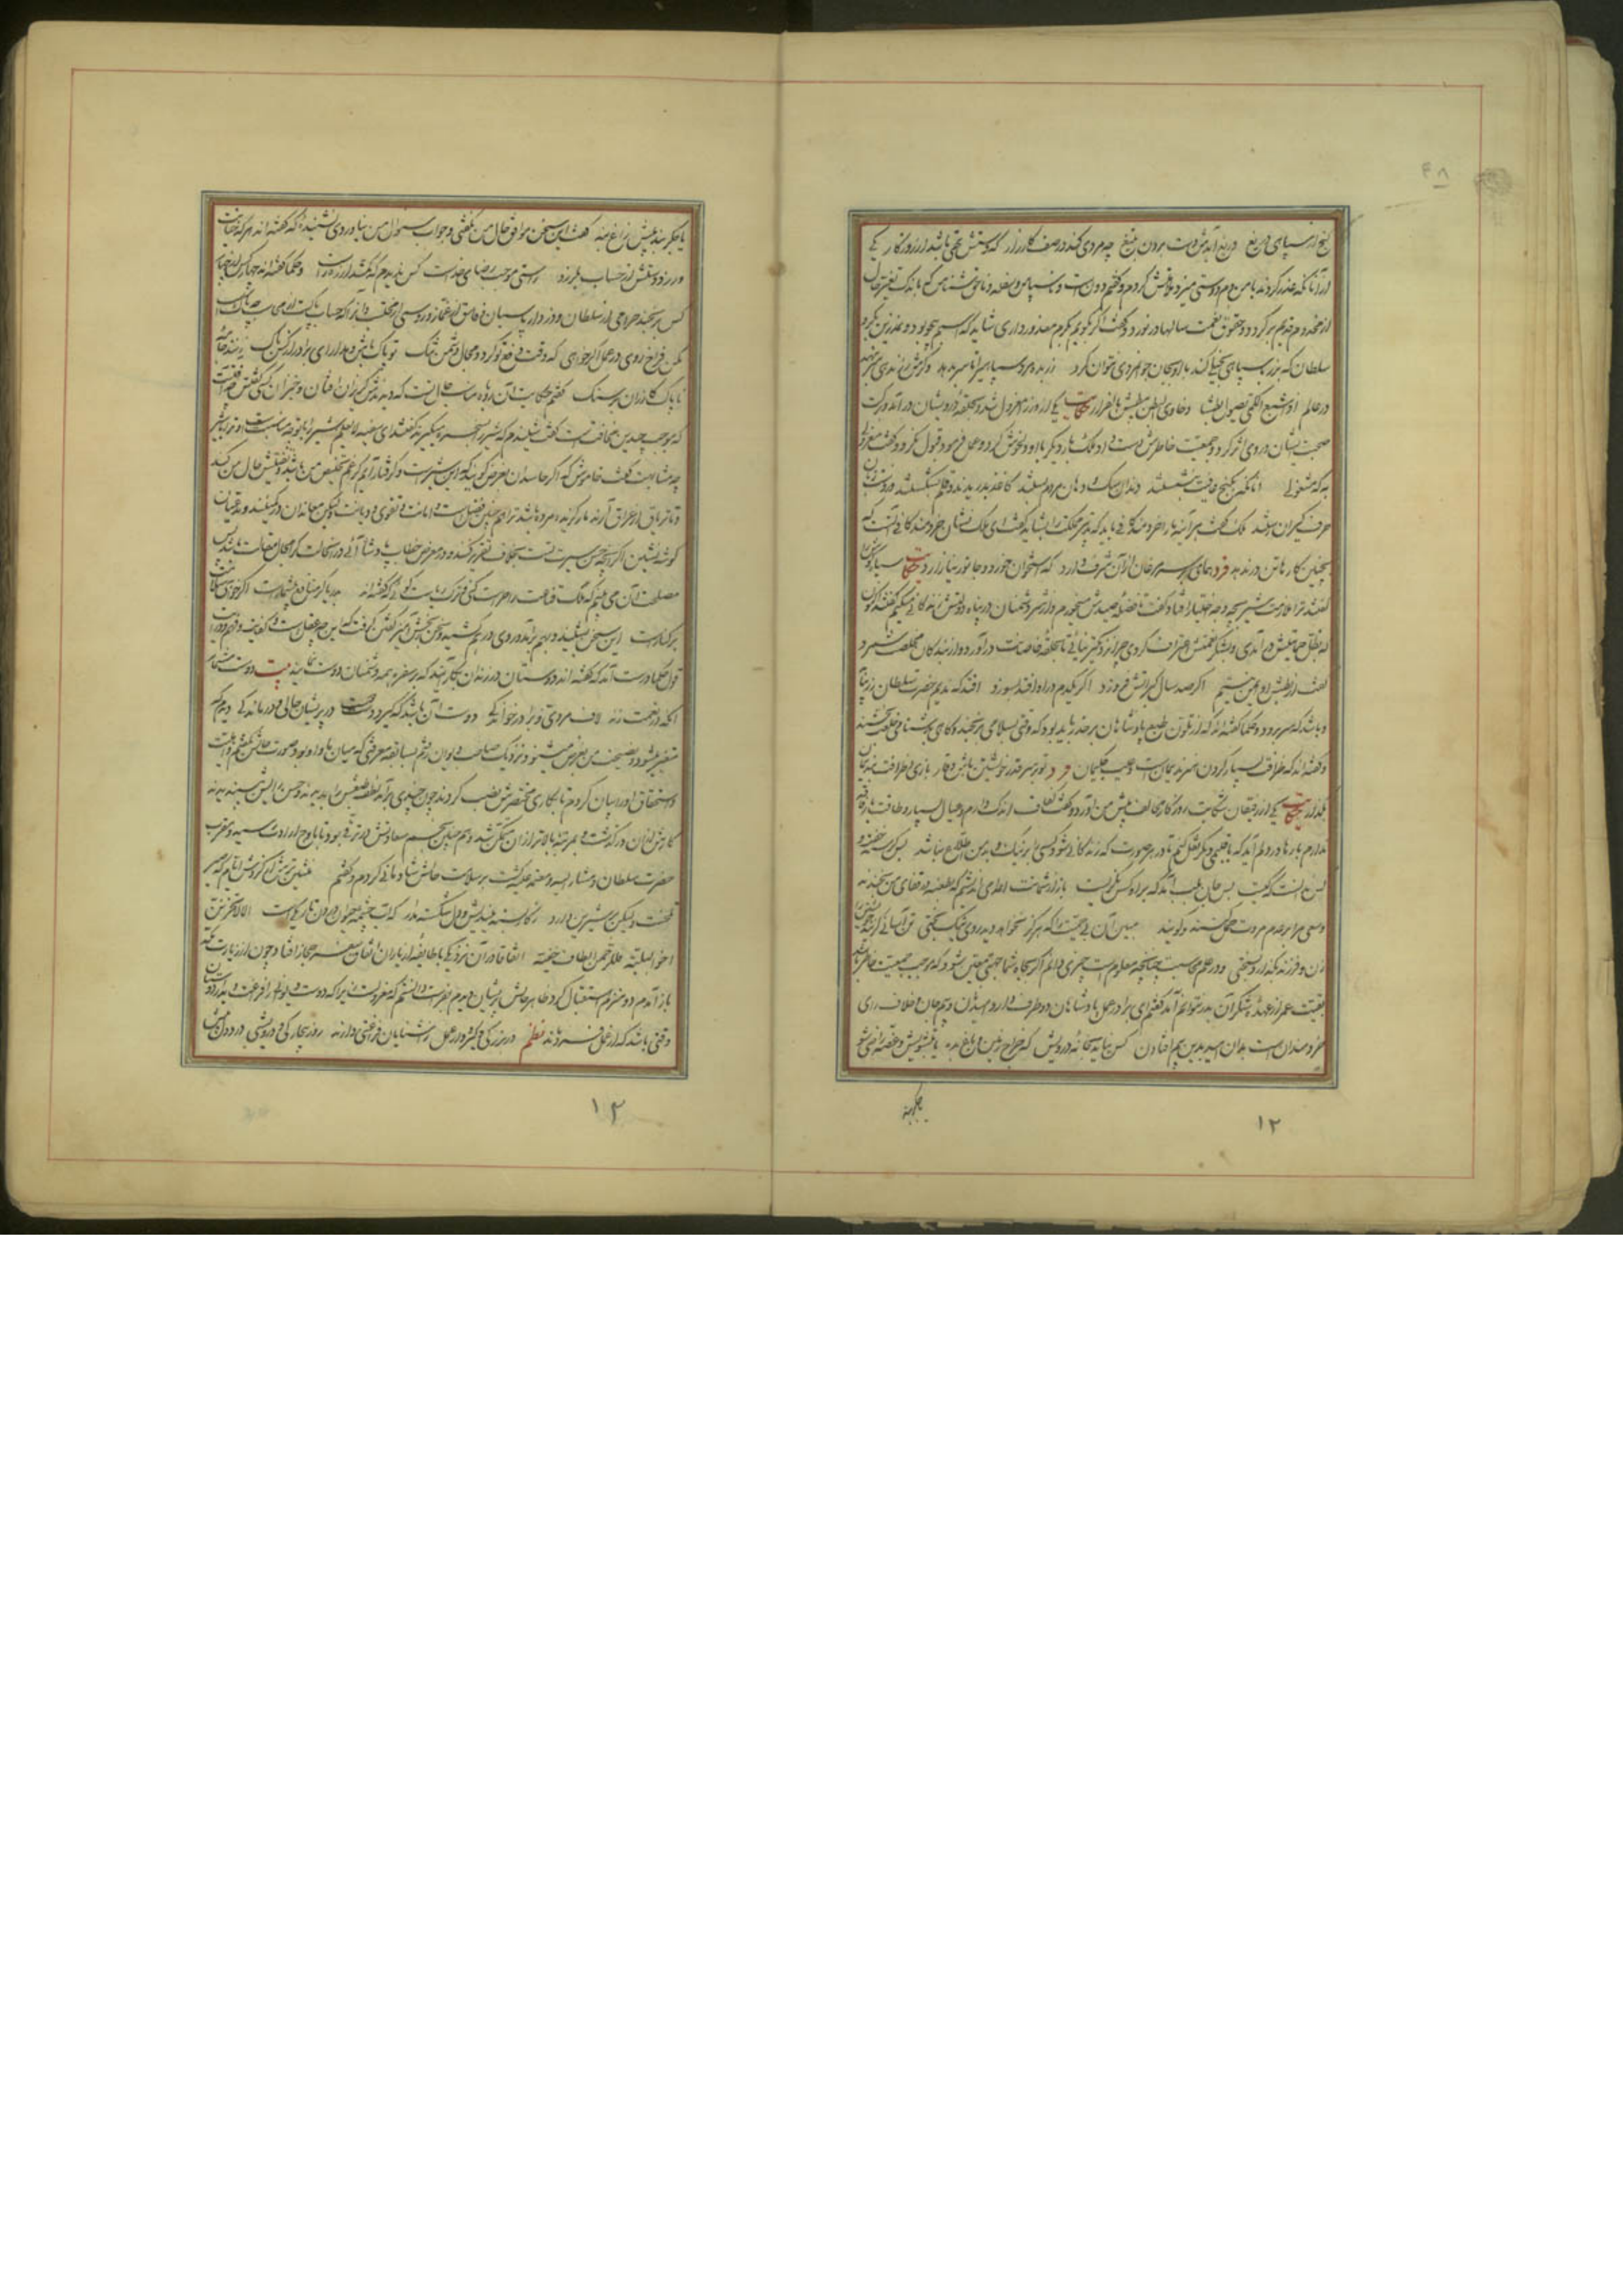 گنج از سپاهی دریغ دریغ آیدش دست بردن بتیغ چه مردی کند در صف کارزار که دستش تهی باشد از روزگار یکی
از آنانکه غدر کردند با من دم دوستی میزد ملامتش کردم و گفتم دونست و ناسپاس و سفله و ناحق شناس که باندک تغیر حال
از مخدوم قدیم برگردد و حقوق نعمت سالها در نوردد گفت اگر بکرم معذور داری شاید که اسبم بیجو بود و نمدزین بگرو
سلطان که بزر با سپاهی بخیلی کند با او بجان جوانمردی نتوان کرد زر بده مرد سپاهی را تا سر بدهد وگرش زر ندهی سر بنهد
در عالم اذا شبع الکمی یصول بطشا و خاوی البطن یبطش بالفرار حکایت یکی از وزرا معزول شد و بحلقه درویشان درآمد و برکت
صحبت ایشان در وی اثر کرد و جمعیت خاطرش دست داد ملک بار دیگر با او دلخوش کرد و عمل فرمود قبول نکرد و گفت معزولی
به که مشغولی آنانکه بکنج عافیت بنشستند دندان سگ و دهان مردم بستند کاغذ بدریدند و قلم بشکستند وز دست و زبان
حرف گیران رستند ملک گفت هر آینه ما را خردمند کافی باید که تدبیر مملکت را بشاید گفت ای ملک نشان خردمند کافی آنست که
بچنین کارها تن در ندهد فرد همای بر سر مرغان از آن شرف دارد که استخوان خورد و جانور نیازارد حکایت سیاه گوش را
گفتند ترا ملازمت شیر بچه وجه اختیار افتاد گفت تا فضله صیدش میخورم و از شر دشمنان در پناه دولتش زندگانی میکنم گفتند اکنون
که بظل حمایتش درآمدی و بشکر نعمتش اعتراف کردی چرا نزدیکتر نیائی تا بحلقه خاصانت درآورد و از بندگان مخلصت شمرد
گفت از بطش او ایمن نیستم اگر صد سال گبر آتش فروزد اگر یکدم در او افتد بسوزد افتد که ندیم حضرت سلطان زر بیابد
و باشد که سر برود و حکما گفته اند که از تلون طبع پادشاهان بر حذر باید بود که وقتی بسلامی برنجند و گاهی بدشنامی خلعت بخشند
و گفته اند که ظرافت بسیار کردن هنر ندیمان است و عیب حکیمان فرد تو بر سر قدر خویشتن باش و وقار بازی و ظرافت بندیمان
بگذار حکایت یکی از رفیقان شکایت روزگار مخالف پیش من آورد و گفت کفاف اندک دارم و عیال بسیار و طاقت فاقه
ندارم بارها در دلم آمد که باقلیمی دیگر نقل کنم تا در هر صورت که زندگانی شود کسی را بر نیک و بد من اطلاع نباشد بس گرسنه خفت و
کس ندانست که کیست بس جان بلب آمد که بر او کس نگریست باز از شماتت اعدا می اندیشم که بطعنه در قفای من بخندند
و سعی مرا بر عدم مروت حمل کنند و گویند مبین آن بی حمیت را که هرگز نخواهد دید روی نیک بختی تن آسانی گزیند خویشتن را
زن و فرزند بگذارد بسختی و در علم محاسبت چنانچه معلوم است چیزی دانم اگر بجاه شما جهتی معین شود که موجب جمعیت خاطر باشد
بقیت عمر از عهده شکر آن بدر نتوانم آمد گفتم ای برادر عمل پادشاهان دو طرف دارد امید نان و بیم جان و خلاف رای
خردمندان است بدان امید بدین بیم افتادن کس نیاید بخانه درویش که خراج زمین و باغ بده یا بتشویش و غصه راضی شو
یا جگربند
۱۲
۴۸
یا جگربند پیش زاغ بنه گفت این سخن موافق حال من نگفتی و جواب سئوال من نیاوردی نشنیده که گفته اند هر که خیانت
ورزد دستش از حساب بلرزد راستی موجب رضای خداست کس ندیدم که گم شد از ره راست و حکما گفته اند چهار کس از چهار
کس برنجند حرامی از سلطان و دزد از پاسبان و فاسق از غماز و روسپی از محتسب و آنرا که حساب پاکست از محاسب چه باکست
مکن فراخ روی در عمل اگر خواهی که وقت رفع تو گردد مجال دشمن تنگ تو پاک باش و مدار ای برادر از کس باک زنند جامه
ناپاک گازران بر سنگ گفتم حکایت آن روباه مناسب حال تست که دیدندش گریزان و افتان و خیزان کسی گفتش چه آفت است
که موجب چندین مخافت است گفت شنیدم که شیر را بسخره میگیرند گفتند ای سفیه لایعلم شیر را با تو چه مناسبت است و ترا با شیر
چه مشابهت گفت خاموش که اگر حاسدان بغرض گویند که این شیر است و گرفتار آیم که را غم تخلیص من باشد و تفتیش حال من کند
و تا تریاق از عراق آرند مار گزیده مرده باشد ترا همچنین فضل است و امانت و تقوی و دیانت ولیکن معاندان در کمینند و مدعیان
گوشه نشین اگر آنچه حسن سیرت تست بخلاف تقریر کنند و در معرض خطاب پادشاه آئی در آنحالت کرا مجال مقالت باشد پس
مصلحت آن می بینم که ملک قناعت را حراست کنی و ترک ریاست گوئی که گفته اند بدریا در منافع بیشمار است اگر خواهی سلامت
بر کنار است این سخن بشنید و بهم برآمد و روی درهم کشید و سخن رنجش آمیز گفتن گرفت که این چه عقل است و کفایت و فهم و درایت
قول حکما درست آمد که گفته اند دوستان در زندان بکار آیند که بر سفره همه دشمنان دوست نمایند بیت دوست مشمار
آنکه در نعمت زند لاف مردی و برادر خواندگی دوست آن باشد که گیرد دست دوست در پریشان حالی و درماندگی دیدم که
متغیر میشود و نصیحت من بغرض میشنود نزدیک صاحب دیوان رفتم بسابقه معرفتی که میان ما و او بود صورت حالش بگفتم و اهلیت
و استحقاق او را بیان کردم تا بکاری مختصرش نصب کردند چون چندی برآمد لطف طبعش را بدیدند و حسن رایش پسندیدند
کارش از آن درگذشت و بمرتبه بالاتر از آن متمکن شد و همچنین نجم سعادتش در ترقی بود تا باوج ارادت رسید و مقرب
حضرت سلطان و مشار الیه و معتمد علیه گشت بر سلامت حالش شادمانی کردم و گفتم منشین ترش از گردش ایام که صبر
تلخست ولیکن بر شیرین دارد ز کار بسته میندیش و دل شکسته مدار که آب چشمه حیوان درون تاریکیست الا لا تحزنن
اخو البلیة فللرحمن الطاف خفیة اتفاقا در آن نزدیکی با طایفه از یاران اتفاق سفر حجاز افتاد چون از زیارت مکه
باز آمدم دو منزلم استقبال کرد ظاهر حالش پریشان دیدم بفراست دانستم که معزولست زیرا که دوستان را
وقتی باشد که از عمل فرو مانند نظم در بزرگی و گیرودار عمل ز آشنایان فراغتی دارند روز بیچارگی و درویشی درد دل پیش
۱۳